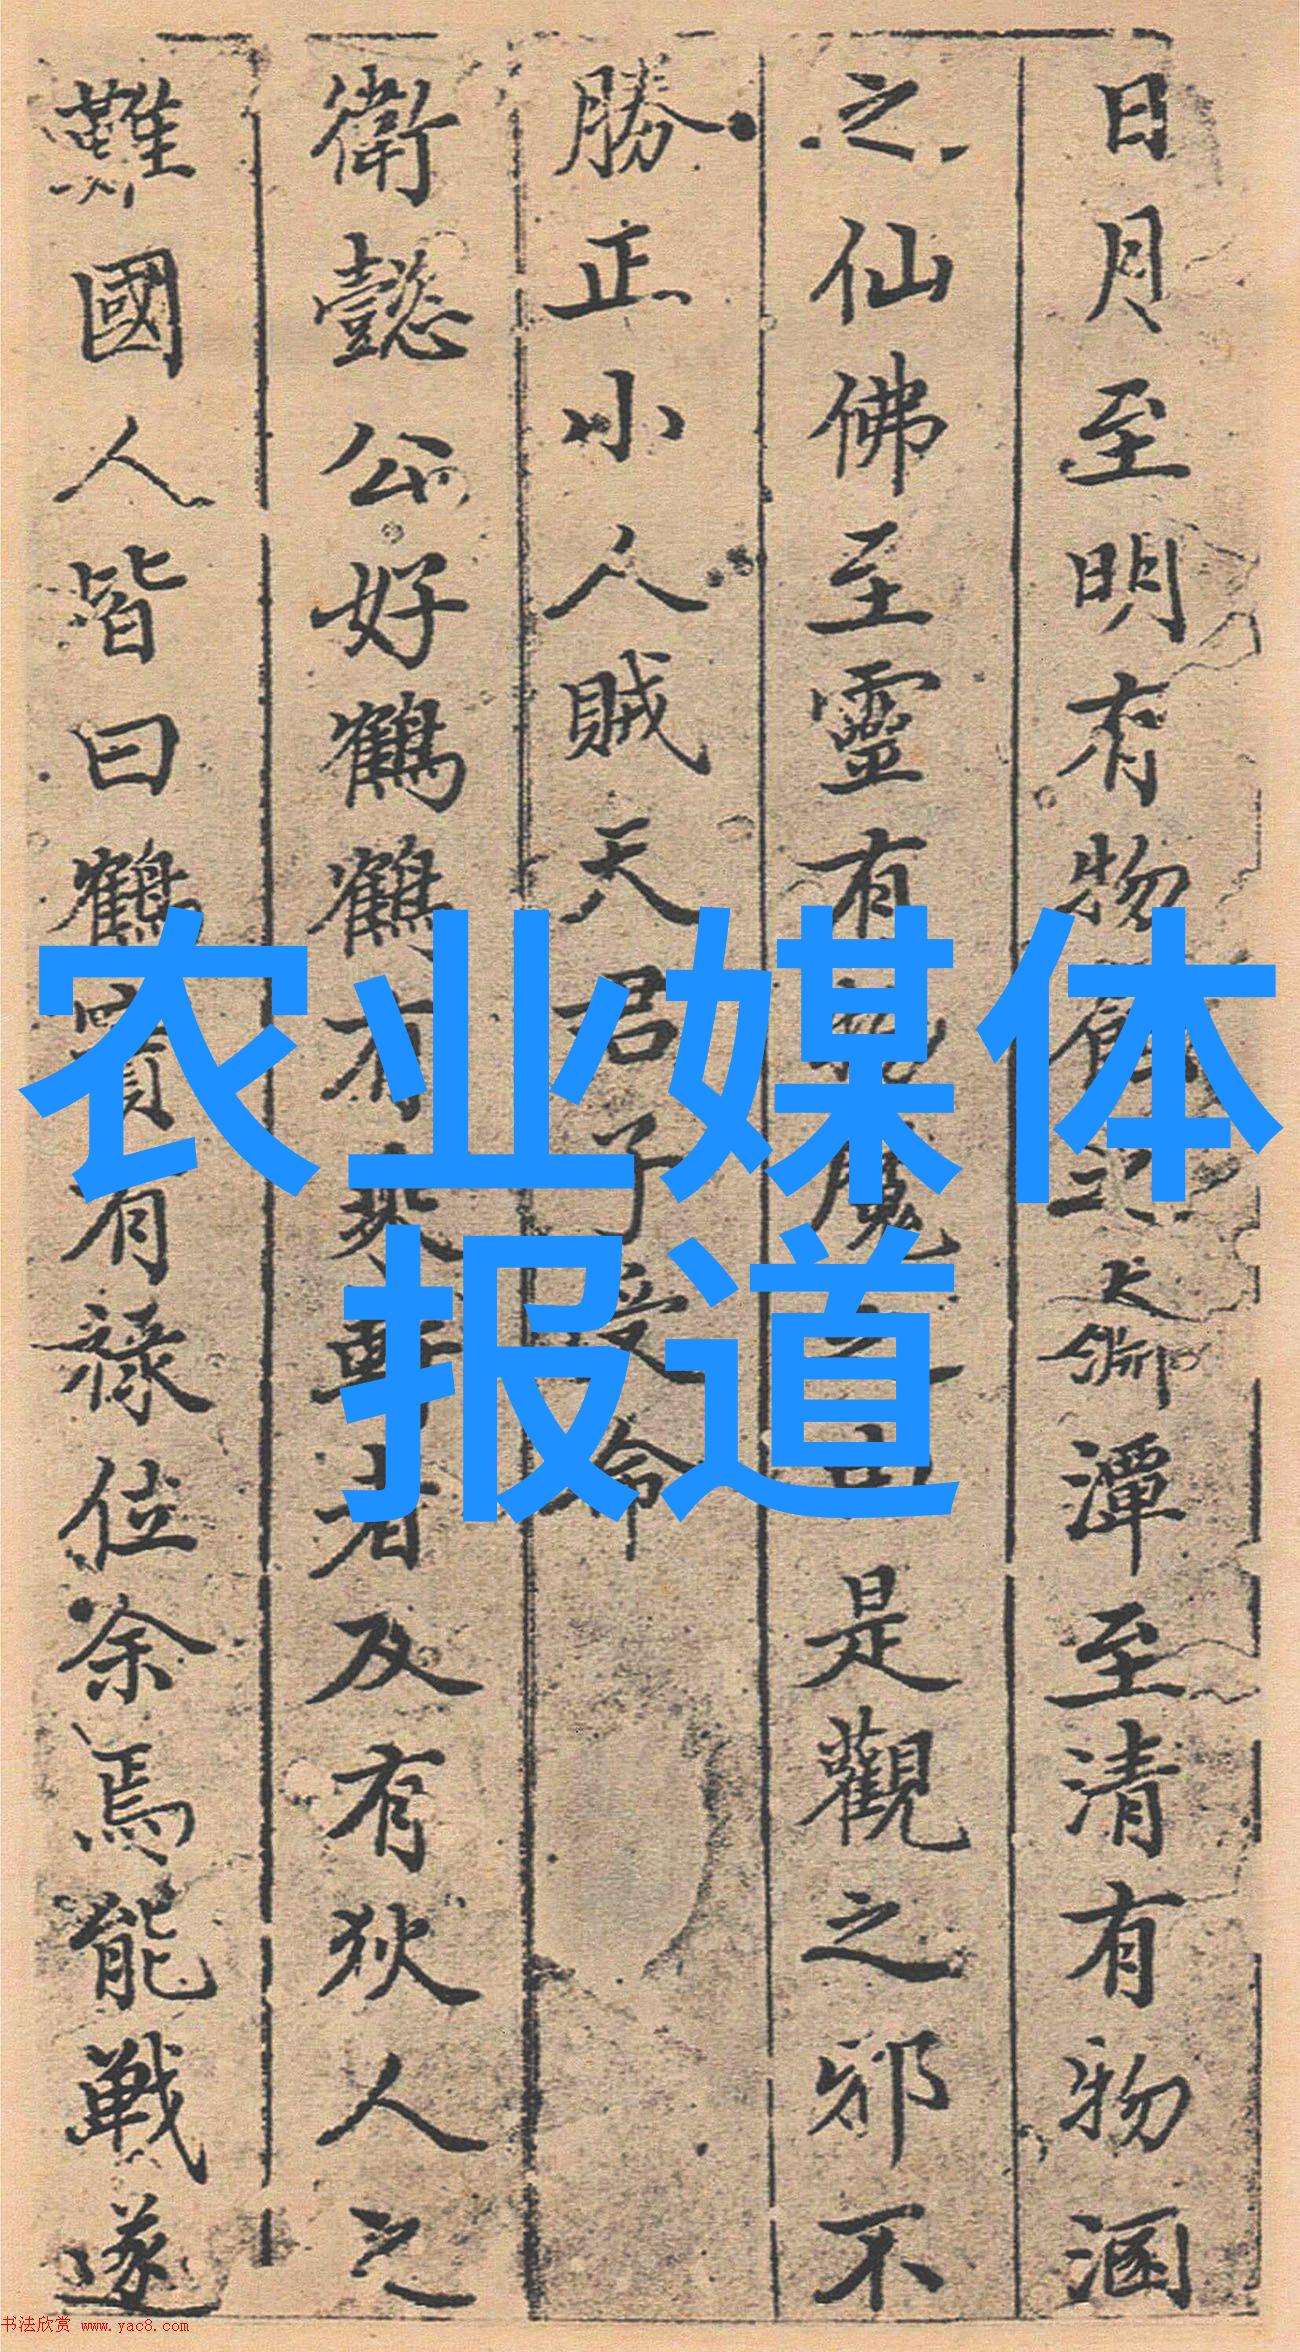 日月至明有物之潭至清有物涵
之仙佛至靈有物魔之由是觀之邪不
勝正小人賊天君子受命
衛懿公好鶴鶴有乘軒者及有狄人之
難國人皆曰鶴實有祿位余焉能戰遂
农业媒体
报道
书法欣赏 www.yac8.com